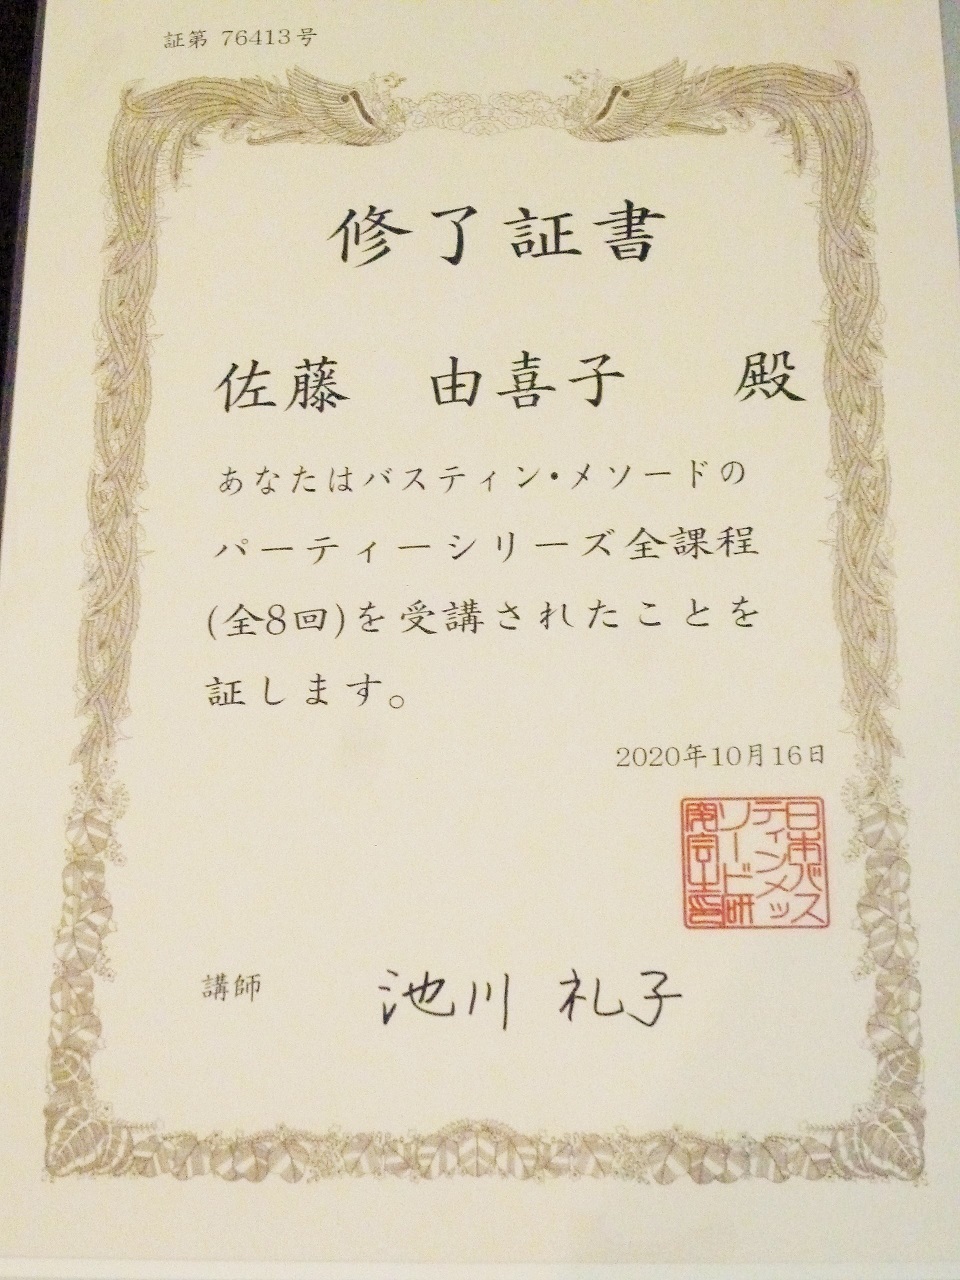 証第 76413号
修了証書
佐藤 由喜子 殿
あなたはバスティン・メソードの
パーティーシリーズ全課程
(全8回)を受講されたことを
証します。
2020年10月16日
日本バス
ティンメッ
ソード研
講師 池川 礼子